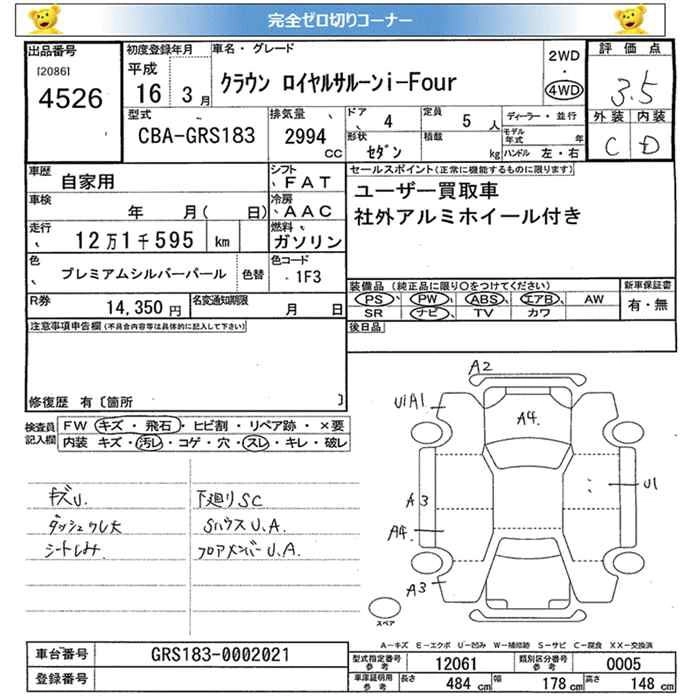 完全ゼロ切りコーナー
出品番号
[2086]
4526
初度登録年月
平成
16 3月
車名・グレード
クラウン ロイヤルサルーンi-Four
2WD
・
4WD
評価点
3.5
外装 内装
C D
型式
CBA-GRS183
排気量
2994
CC
ドア
4
定員
5 人
ディーラー・並行
形状
セダン
積載
kg
モデル年式 年
ハンドル 左・右
車歴
自家用
シフト
FAT
車検
年 月( 日)
冷房
AAC
走行
12万1千595 km
燃料
ガソリン
色
プレミアムシルバーパール
色替
色コード
1F3
R券
14,350円
名変通知期限
月 日
セールスポイント(正常に機能するものに限ります)
ユーザー買取車
社外アルミホイール付き
装備品(純正品に限り○をつけてください)
PS PW ABS エアB AW
SR ナビ TV カワ
新車保証書
有・無
後日品
注意事項申告欄(不具合内容等は具体的に記入して下さい)
修復歴 有〔箇所 〕
検査員記入欄
FW キズ・飛石・ヒビ割・リペア跡・×要
内装 キズ・汚レ・コゲ・穴・スレ・キレ・破レ
キズU.
ダッシュワレ大
シートしみ
下廻りSC
SハウスU.A.
フロアメンバーU.A.
A2
U1A1
A4.
A3
U1
A4.
A3
スペア
A-キズ E-エクボ U-凹み W-補修跡 S-サビ C-腐食 XX-交換済
車台番号
GRS183-0002021
登録番号
型式指定番号
参考
12061
類別区分番号
参考
0005
車庫証明用
参考
長さ 484 cm
幅 178 cm
高さ 148 cm